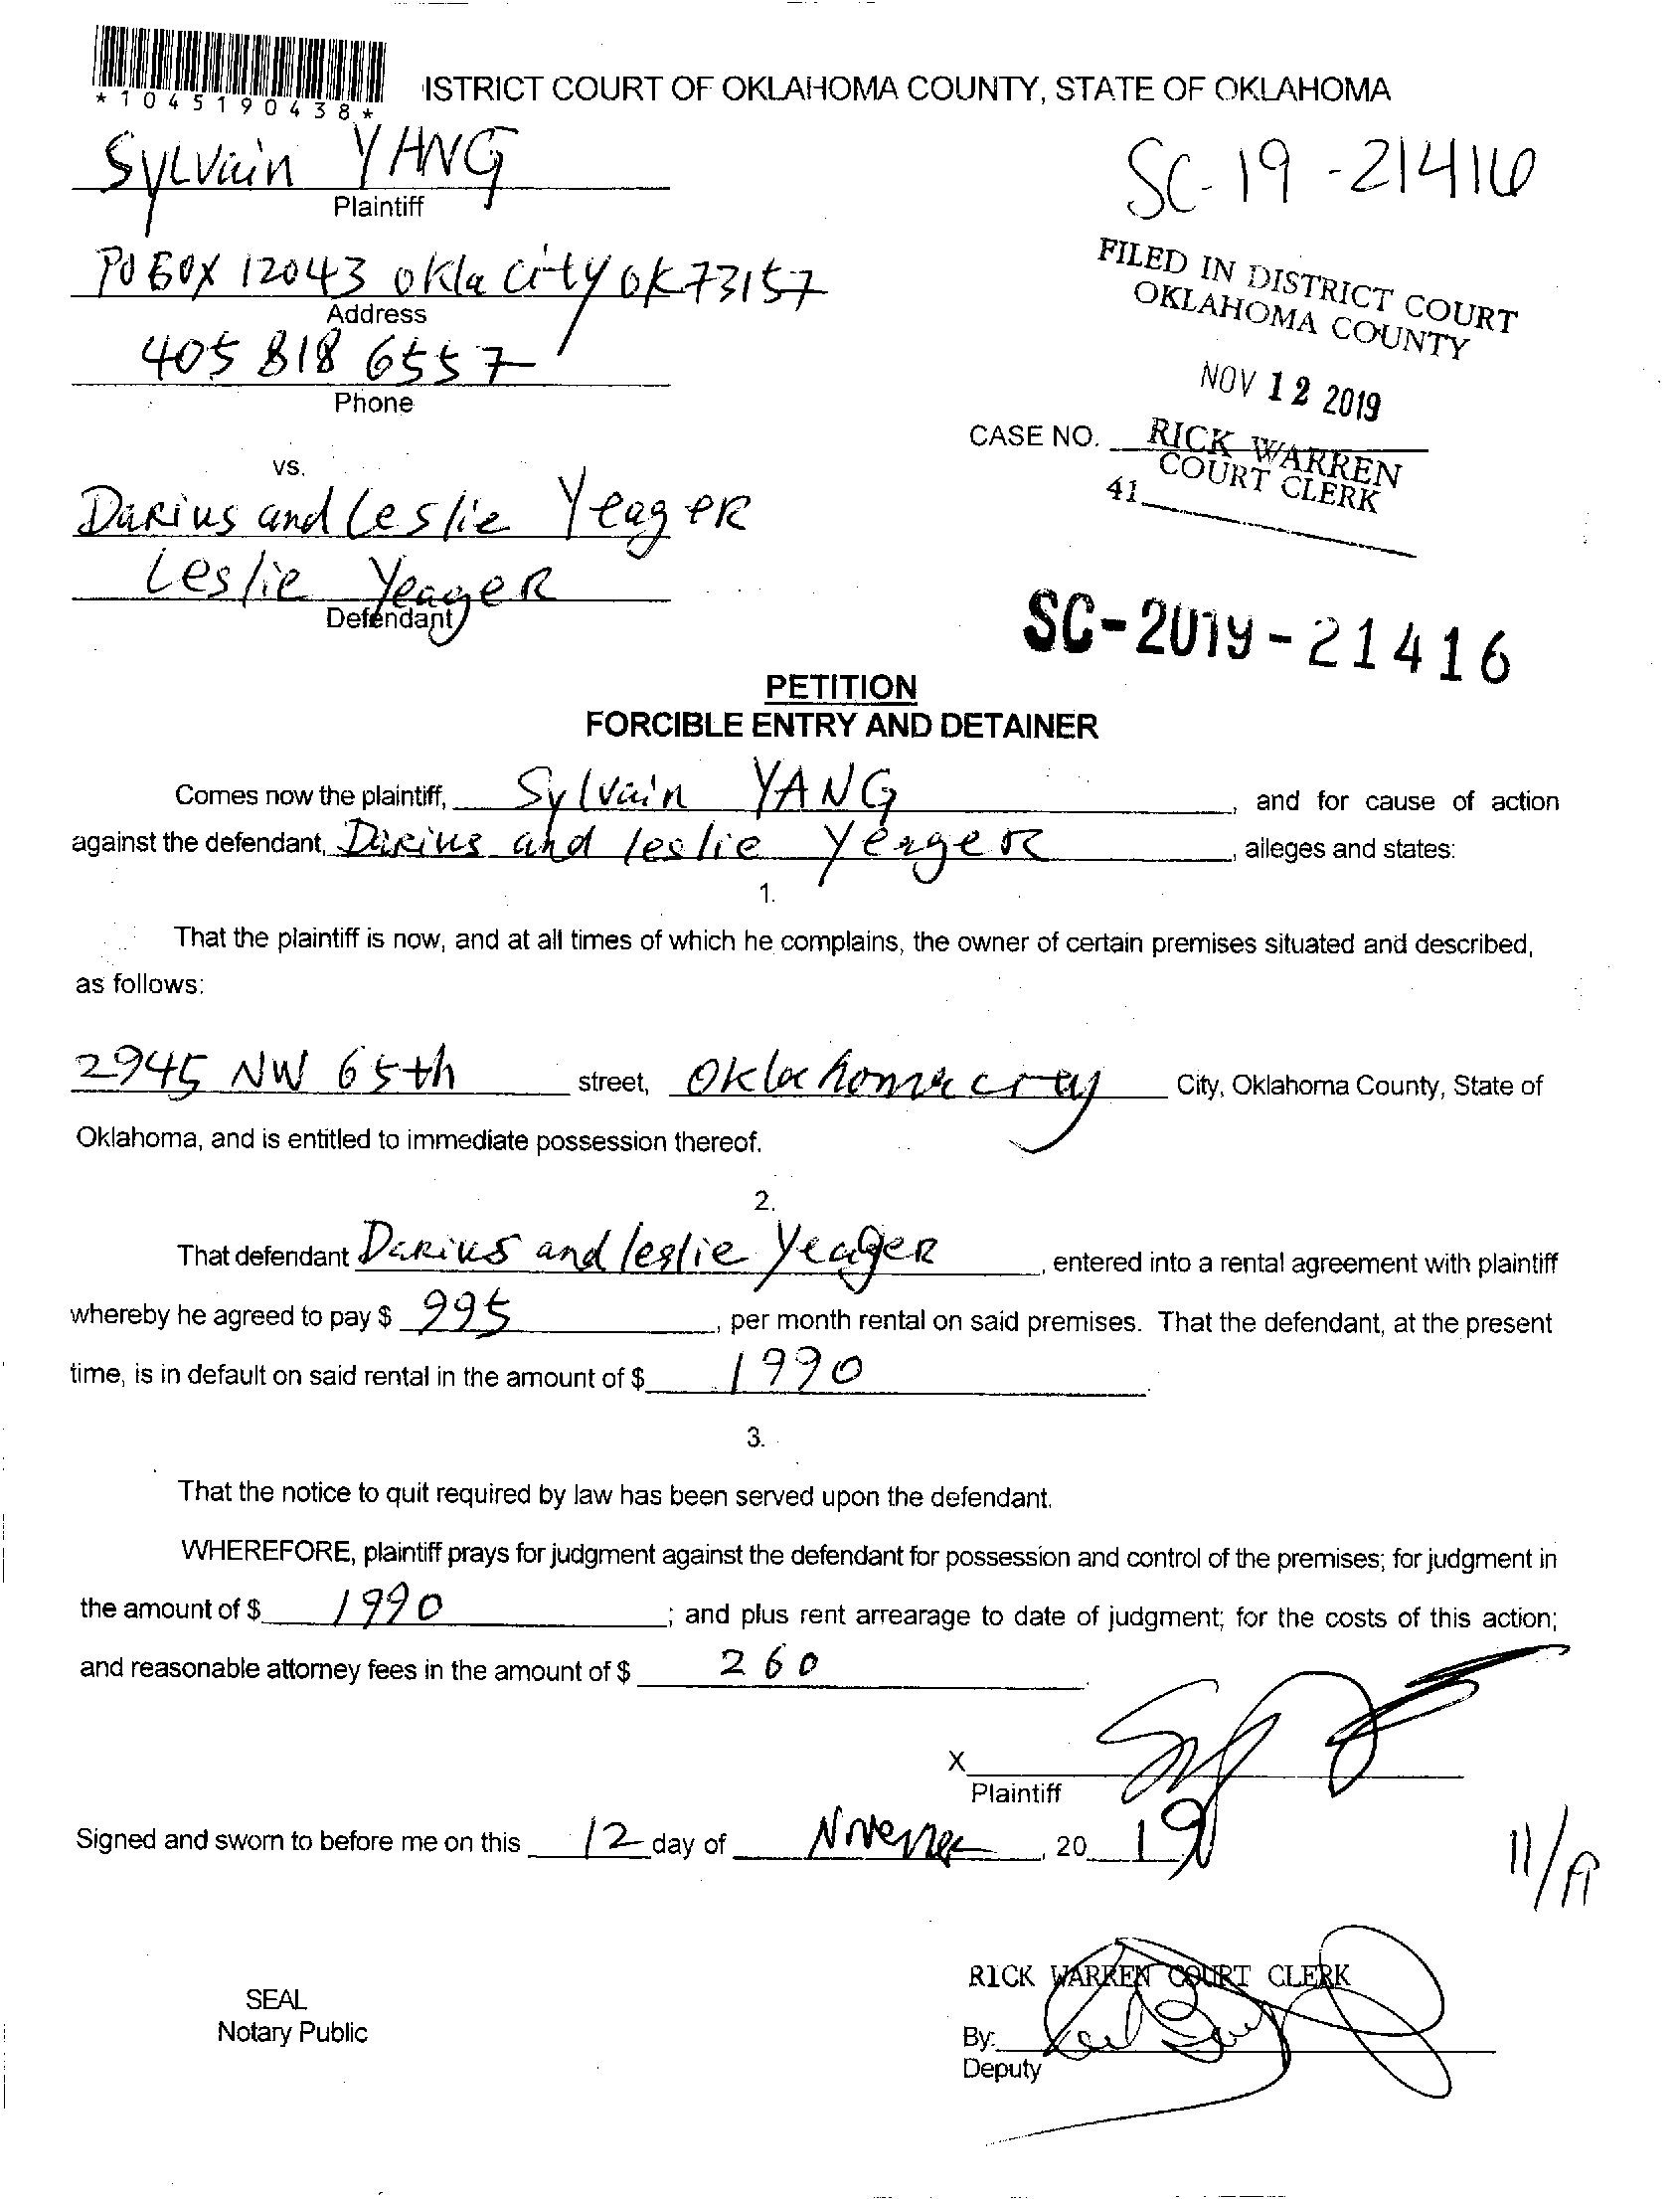 *1045190438*
ISTRICT COURT OF OKLAHOMA COUNTY, STATE OF OKLAHOMA
Sylvain YANG
Plaintiff
SC-19-21416
PO BOX 12043 okla city ok 73157
Address
FILED IN DISTRICT COURT
OKLAHOMA COUNTY
405 818 6557
Phone
NOV 12 2019
CASE NO.
RICK WARREN
COURT CLERK
41
vs.
Darius and Leslie Yeager
Leslie Yeager
Defendant
SC-2019-21416
PETITION
FORCIBLE ENTRY AND DETAINER
Comes now the plaintiff, Sylvain YANG, and for cause of action
against the defendant, Darius and leslie Yeager, alleges and states:
1.
That the plaintiff is now, and at all times of which he complains, the owner of certain premises situated and described,
as follows:
2945 NW 65th street, Oklahoma city City, Oklahoma County, State of
Oklahoma, and is entitled to immediate possession thereof.
2.
That defendant Darius and leslie Yeager, entered into a rental agreement with plaintiff
whereby he agreed to pay $ 995, per month rental on said premises. That the defendant, at the present
time, is in default on said rental in the amount of $ 1990.
3.
That the notice to quit required by law has been served upon the defendant.
WHEREFORE, plaintiff prays for judgment against the defendant for possession and control of the premises; for judgment in
the amount of $ 1990; and plus rent arrearage to date of judgment; for the costs of this action;
and reasonable attorney fees in the amount of $ 260.
X
Plaintiff
Signed and sworn to before me on this 12 day of November, 20 19
RICK WARREN COURT CLERK
SEAL
Notary Public
By:
Deputy